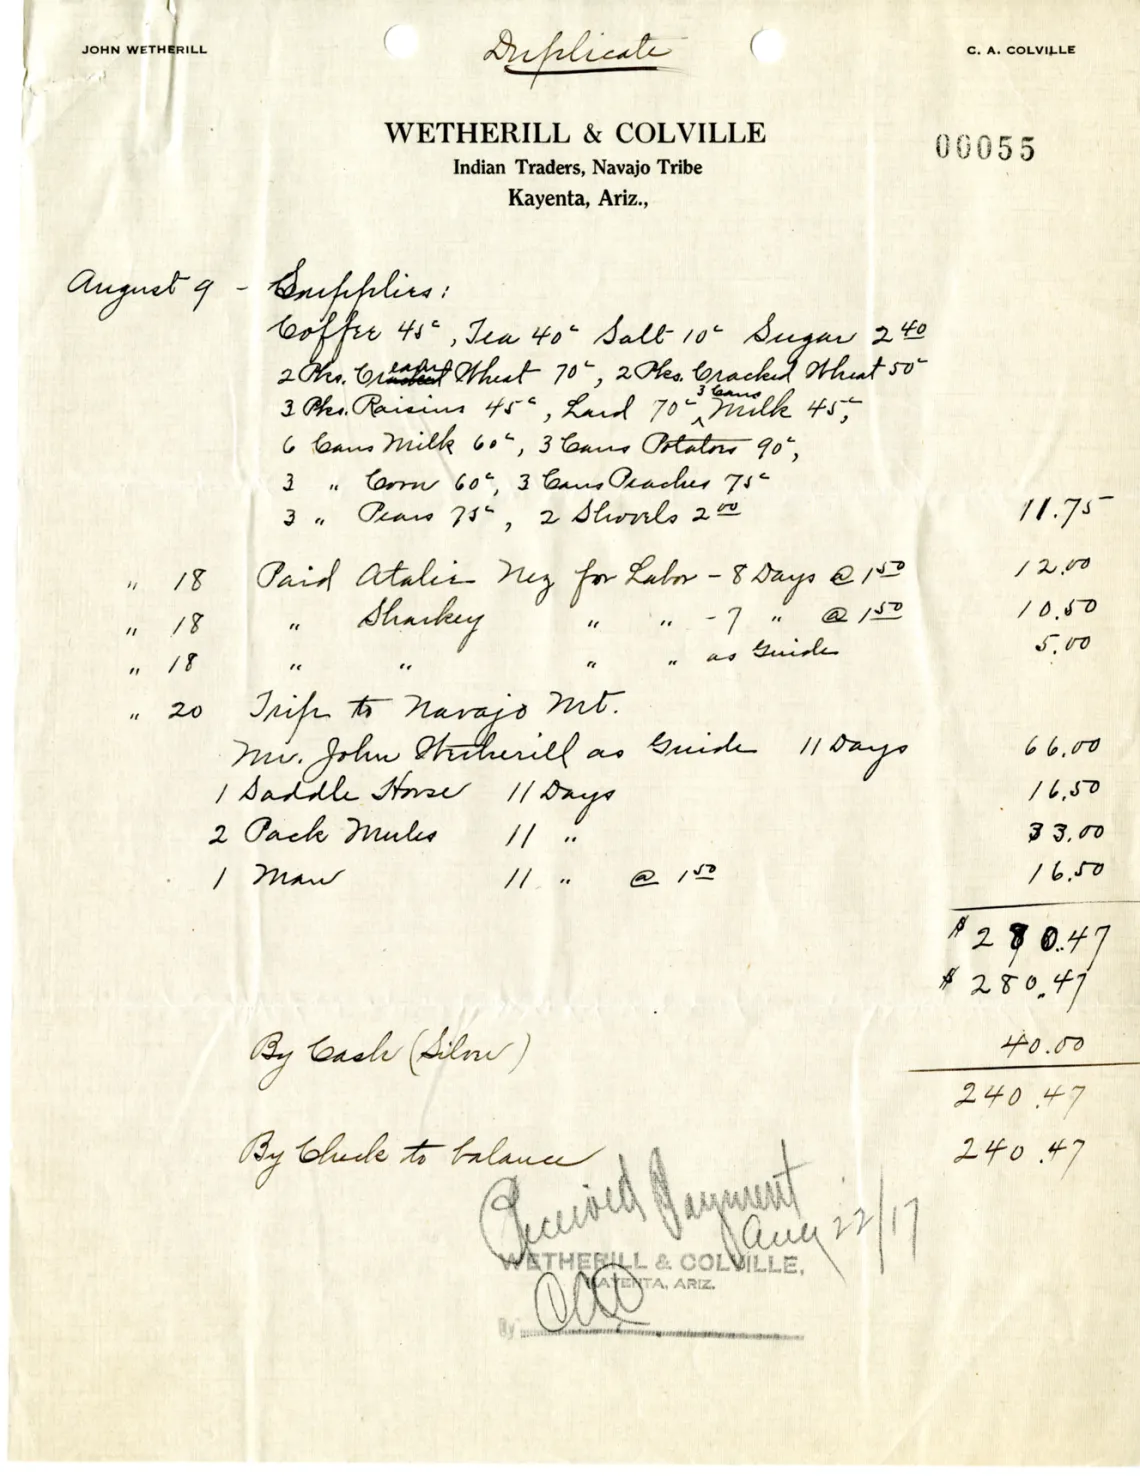 JOHN WETHERILL
Duplicate
C. A. COLVILLE
WETHERILL & COLVILLE
Indian Traders, Navajo Tribe
Kayenta, Ariz.,
00055
August 9 - Supplies:
Coffee 45c, Tea 40c Salt 10c Sugar 2 40
2 Pks. Cream Wheat 70c, 2 Pks. Cracked Wheat 50c
3 Pks. Raisins 45c, Lard 70c, 3 Cans Milk 45c,
6 Cans Milk 60c, 3 Cans Potatoes 90c,
3 " Corn 60c, 3 Cans Peaches 75c
3 " Pears 75c, 2 Shovels 2 00 11.75
" 18 Paid Atalie Nez for Labor - 8 Days @ 1 50 12.00
" 18 " Sharkey " " - 7 " @ 1 50 10.50
" 18 " " " " as Guide 5.00
" 20 Trip to Navajo Mt.
Mr. John Wetherill as Guide 11 Days 66.00
1 Saddle Horse 11 Days 16.50
2 Pack Mules 11 " 33.00
1 Man 11 " @ 1 50 16.50
$ 280.47
$ 280.47
By Cash (Silver) 40.00
240.47
By Check to balance 240.47
Received Payment
Aug 22/17
WETHERILL & COLVILLE,
KAYENTA, ARIZ.
By